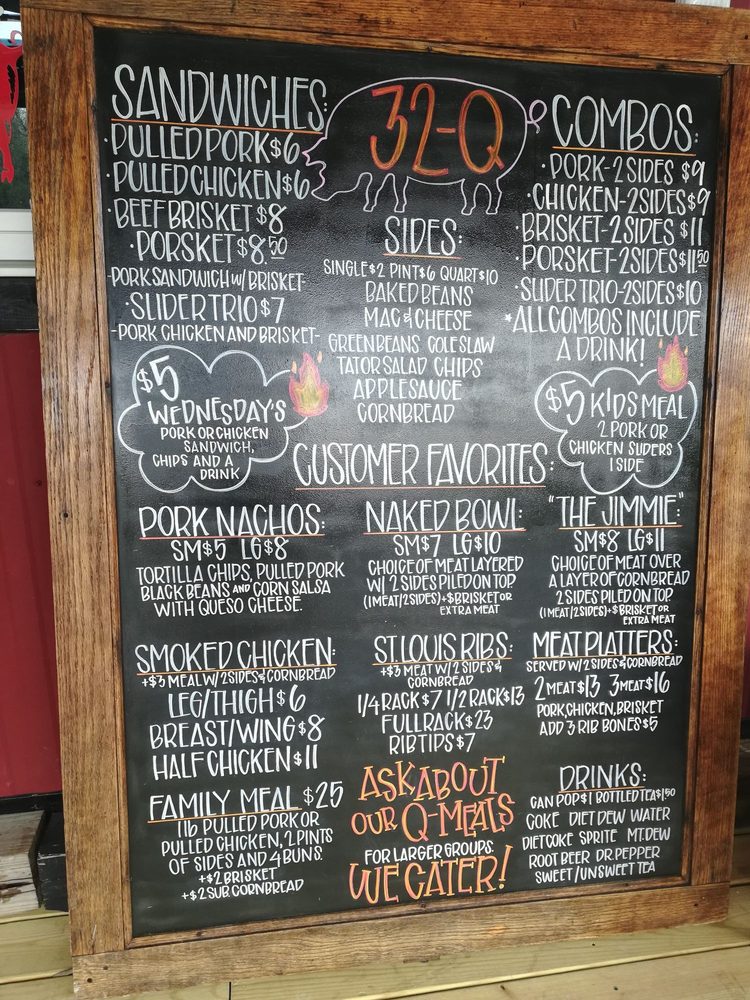 32-Q
SANDWICHES:
·PULLED PORK $6
·PULLED CHICKEN $6
·BEEF BRISKET $8
·PORSKET $8.50
-PORK SANDWICH W/ BRISKET-
·SLIDER TRIO $7
-PORK CHICKEN AND BRISKET-
$5
WEDNESDAY'S
PORK OR CHICKEN
SANDWICH,
CHIPS AND A
DRINK
SIDES:
SINGLE $2 PINT $6 QUART $10
BAKED BEANS
MAC & CHEESE
GREEN BEANS COLESLAW
TATOR SALAD CHIPS
APPLESAUCE
CORNBREAD
COMBOS:
·PORK-2 SIDES $9
·CHICKEN-2 SIDES $9
·BRISKET-2 SIDES $11
·PORSKET-2 SIDES $11.50
·SLIDER TRIO-2 SIDES $10
*ALL COMBOS INCLUDE
A DRINK!
$5 KIDS MEAL
2 PORK OR
CHICKEN SLIDERS
1 SIDE
CUSTOMER FAVORITES:
PORK NACHOS:
SM $5 LG $8
TORTILLA CHIPS, PULLED PORK
BLACK BEANS AND CORN SALSA
WITH QUESO CHEESE.
NAKED BOWL:
SM $7 LG $10
CHOICE OF MEAT LAYERED
W/ 2 SIDES PILED ON TOP
(1 MEAT/2 SIDES) +$ BRISKET OR
EXTRA MEAT
"THE JIMMIE":
SM $8 LG $11
CHOICE OF MEAT OVER
A LAYER OF CORNBREAD
2 SIDES PILED ON TOP
(1 MEAT/2 SIDES) +$ BRISKET OR
EXTRA MEAT
SMOKED CHICKEN:
+$3 MEAL W/ 2 SIDES & CORNBREAD
LEG/THIGH $6
BREAST/WING $8
HALF CHICKEN $11
ST. LOUIS RIBS:
+$3 MEAT W/ 2 SIDES &
CORNBREAD
1/4 RACK $7 1/2 RACK $13
FULL RACK $23
RIB TIPS $7
MEAT PLATTERS:
SERVED W/ 2 SIDES & CORNBREAD
2 MEAT $13 3 MEAT $16
PORK, CHICKEN, BRISKET
ADD 3 RIB BONES $5
FAMILY MEAL $25
1 lb PULLED PORK OR
PULLED CHICKEN, 2 PINTS
OF SIDES AND 4 BUNS.
+$2 BRISKET
+$2 SUB. CORNBREAD
ASK ABOUT
OUR Q-MEALS
FOR LARGER GROUPS.
WE CATER!
DRINKS:
CAN POP $1 BOTTLED TEA $1.50
COKE DIET DEW WATER
DIET COKE SPRITE MT. DEW
ROOT BEER DR. PEPPER
SWEET/UNSWEET TEA